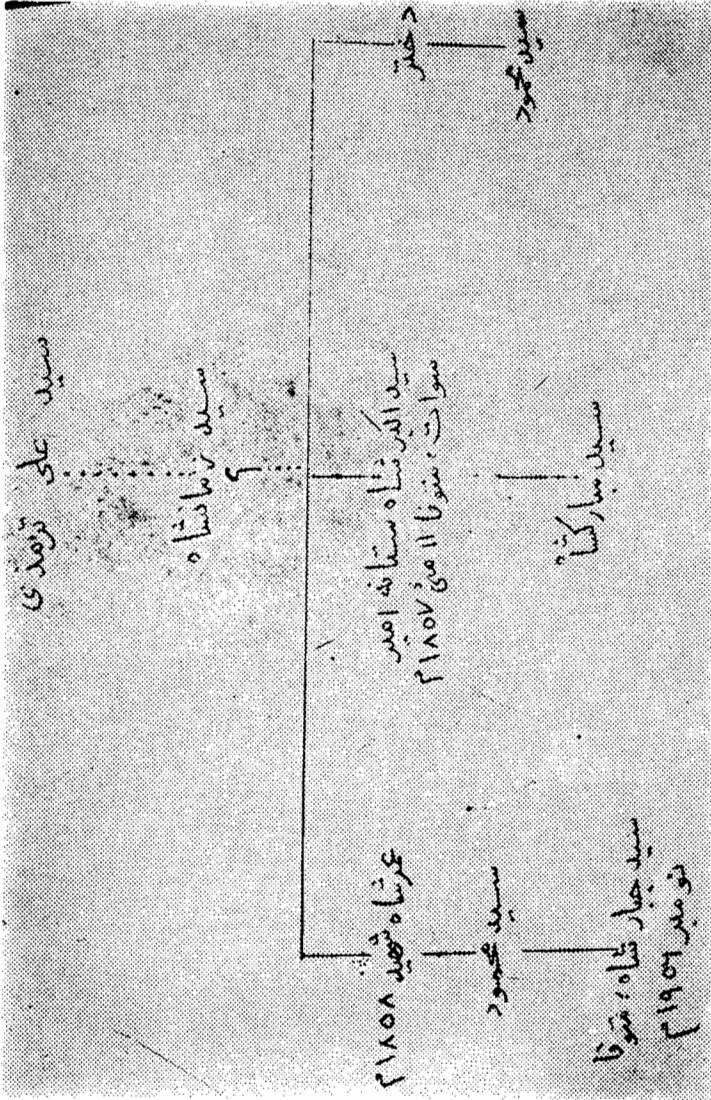 سید علی ترمذی
سید زمانشاہ
؟
دختر
سید محمود
سید اکبر شاہ ستانہ امیر
سوات، متوفا ۱۱ مئی ۱۸۵۷م
سید مبارکشاہ
عمر شاہ شہید ۱۸۵۸م
سید محمود
سید جبار شاہ؛ متوفا
نومبر ۱۹۵۶م